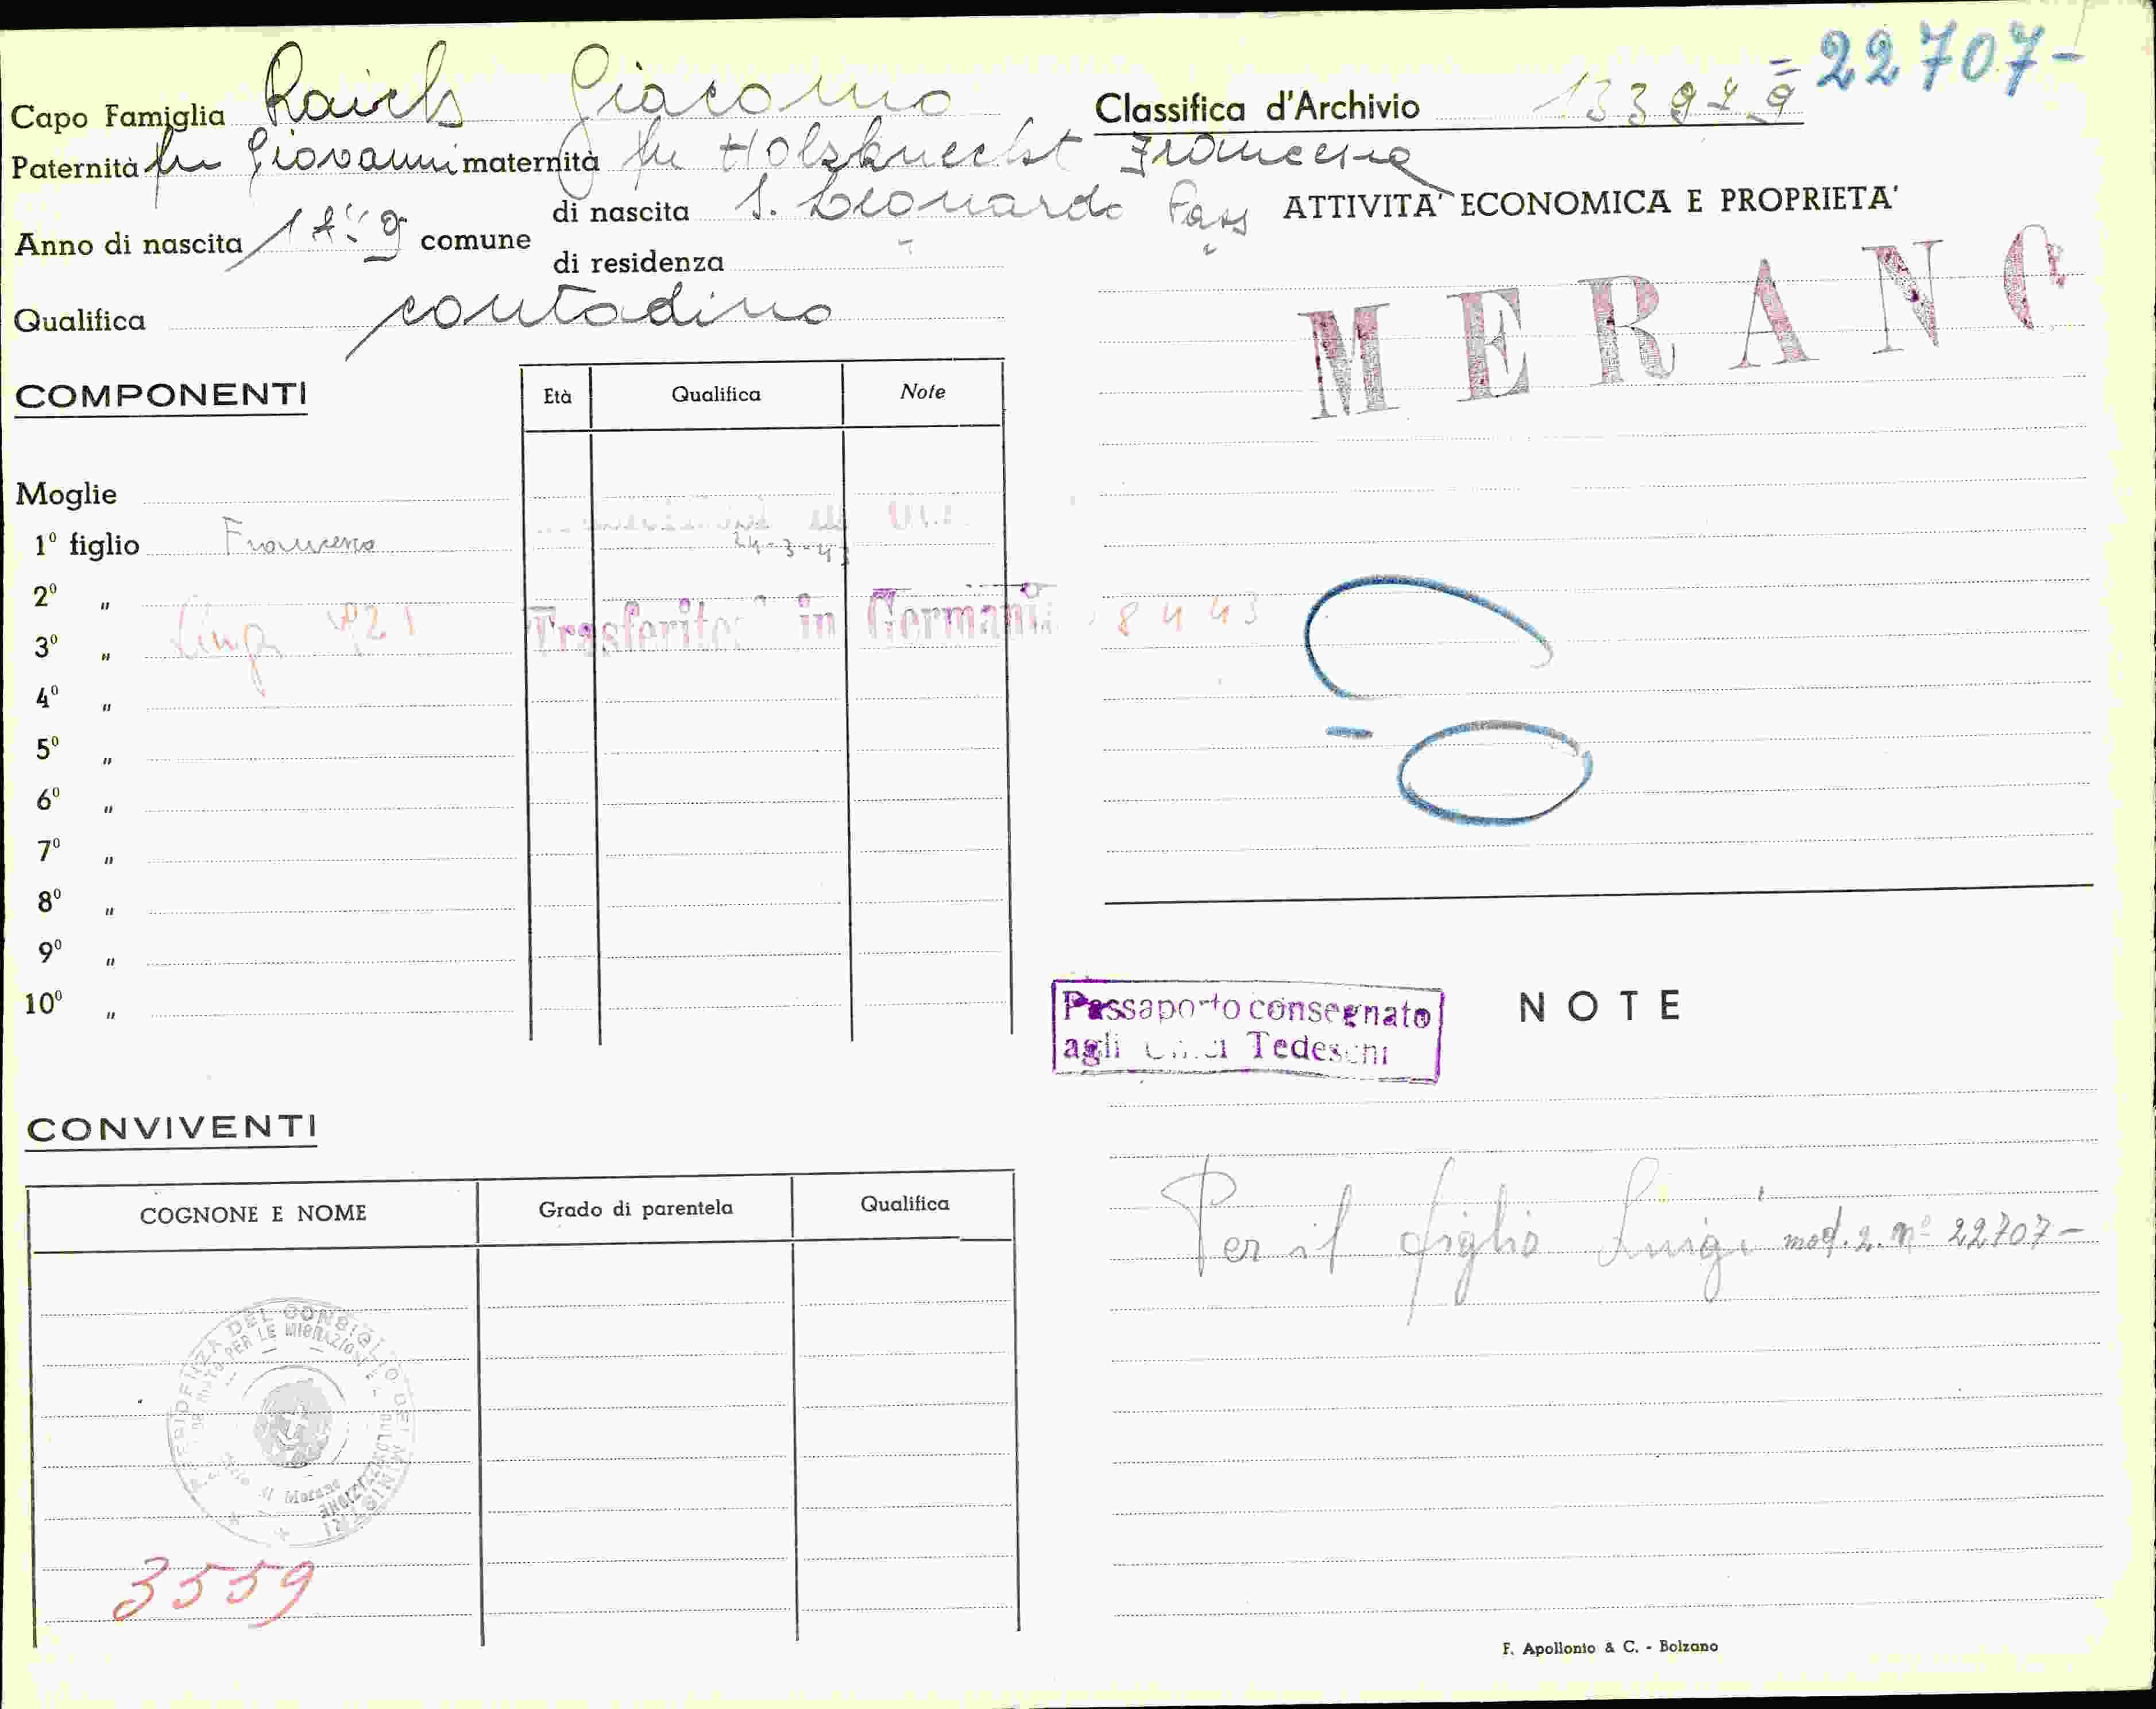 Capo Famiglia Raich Giacomo
Classifica d'Archivio = 22707-
Paternità fu Giovanni maternità fu Holzknecht Francesca
Anno di nascita comune di nascita S. Leonardo Pass
di residenza
Qualifica contadino
COMPONENTI
Età Qualifica Note
Moglie
1º figlio Francesco
24-3-43
2º "
3º " Luigi 921 Trasferito in Germania 8 4 43
4º "
5º "
6º "
7º "
8º "
9º "
10º "
CONVIVENTI
COGNONE E NOME Grado di parentela Qualifica
PRESIDENZA DEL CONSIGLIO DEI MINISTRI
PER LE MIGRAZIONI
di Merano
3559
ATTIVITA' ECONOMICA E PROPRIETA'
MERANO
Passaporto consegnato
agli Uffici Tedeschi
NOTE
Per il figlio Luigi mod. 2. nº 22707-
F. Apollonio & C. - Bolzano